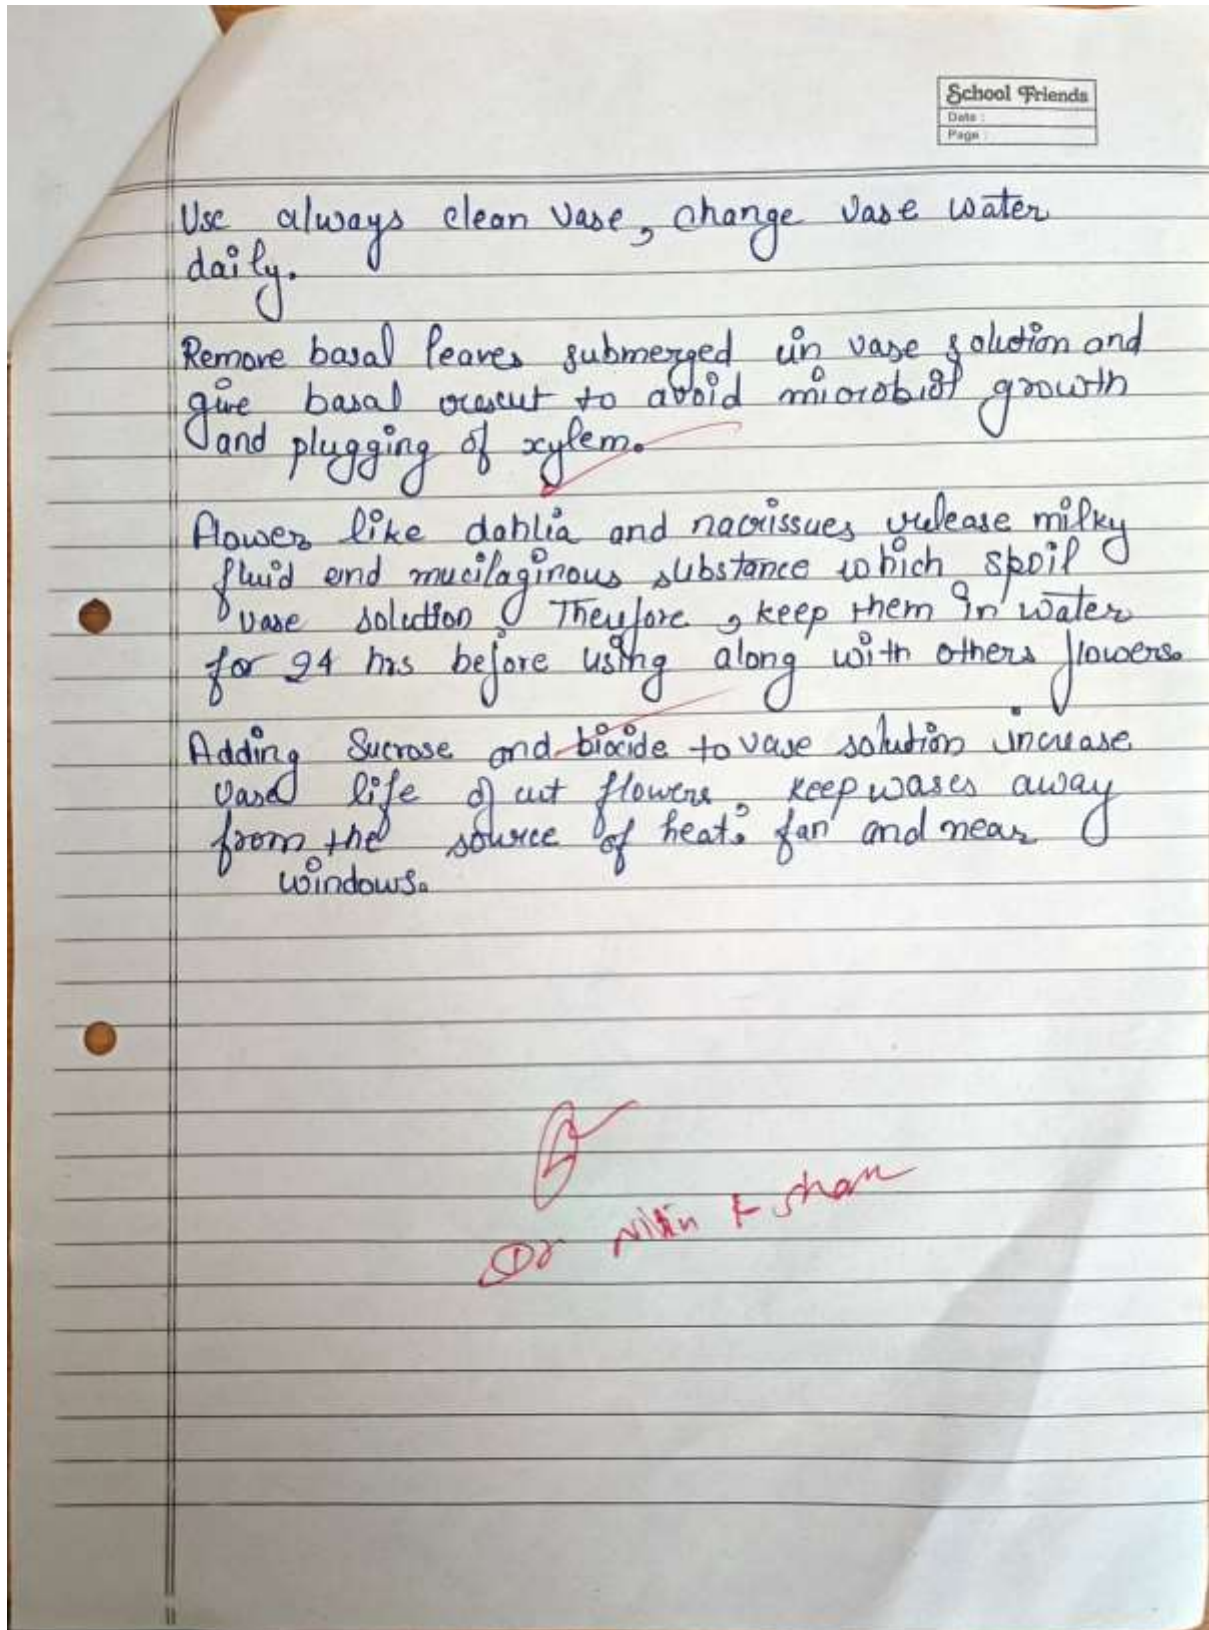 School Friends
Date :
Page :
Use always clean vase, change vase water
daily.
Remove basal leaves submerged in vase solution and
give basal recut to avoid microbiol growth
and plugging of xylem.
Flower like dahlia and nacrissues release milky
fluid and mucilaginous substance which spoil
vase solution. Therefore, keep them in water
for 24 hrs before using along with others flowers.
Adding Sucrose and biocide to vase solution increase
vase life of cut flowers, keep wases away
from the source of heat, fan and near
windows.
Dr Nitin